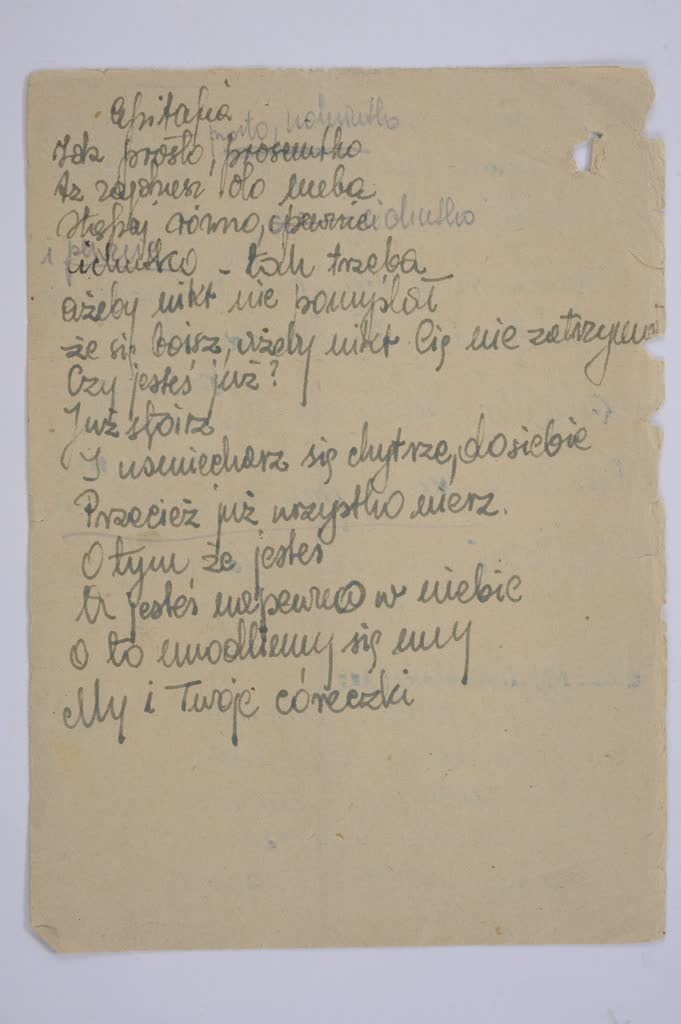 Epitafia
prosto, 
Idz prosto, prosciutko
Az zajdziesz do nieba
Stąpaj równo, pewnie cichutko
i cichutko - tak trzeba
ażeby nikt nie pomyślał
że się boisz, ażeby nikt Cię nie zatrzymał
Czy jesteś już?
Już stoisz
I usmiechasz się chytrze, dosiebie
Przecież już wszystko wiesz.
O tym że jesteś
że jesteś napewno w niebie
O to modlimy się my
My i Twoje córeczki